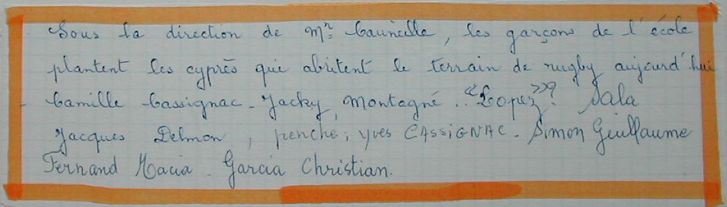 Sous la direction de Mr. Caunelle, les garçons de l'école
plantent les cyprès qui abritent le terrain de rugby aujourd'hui
Camille Cassignac - Jacky, Montagné. "Lopez"? Sala
Jacques Delmon, penché; Yves CASSIGNAC - Simon Guillaume
Fernand Macia - Garcia Christian.